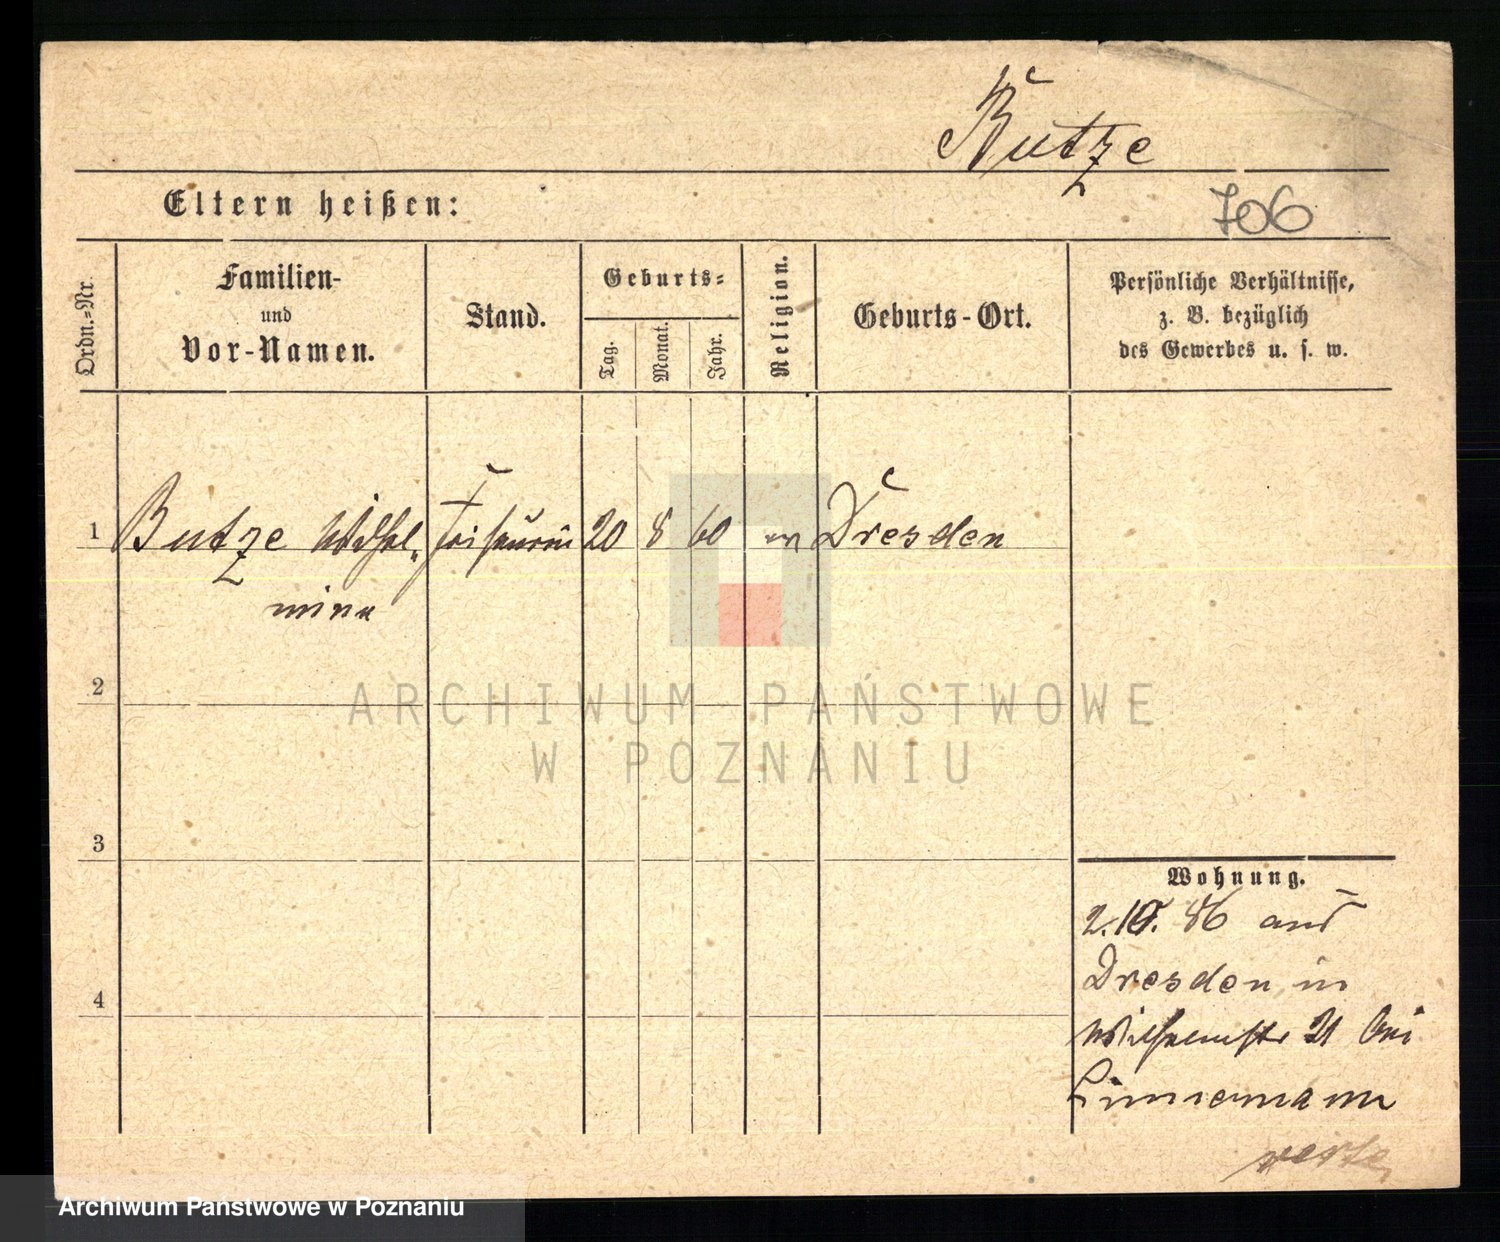 Butze
Eltern heißen:
706
Ordn.-Nr.
Familien-
und
Vor-Namen.
Stand.
Geburts-
Tag.
Monat.
Jahr.
Religion.
Geburts-Ort.
Persönliche Verhältnisse,
z. B. bezüglich
des Gewerbes u. s. w.
1 Butze Wilhel„ Friseurin 20 8 60 ev Dresden
mine
2
3
4
Wohnung.
2.10. 86 aus
Dresden in
Wilhelmstr 21 bei
Zimmermann
verte
ARCHIWUM PAŃSTWOWE
W POZNANIU
Archiwum Państwowe w Poznaniu